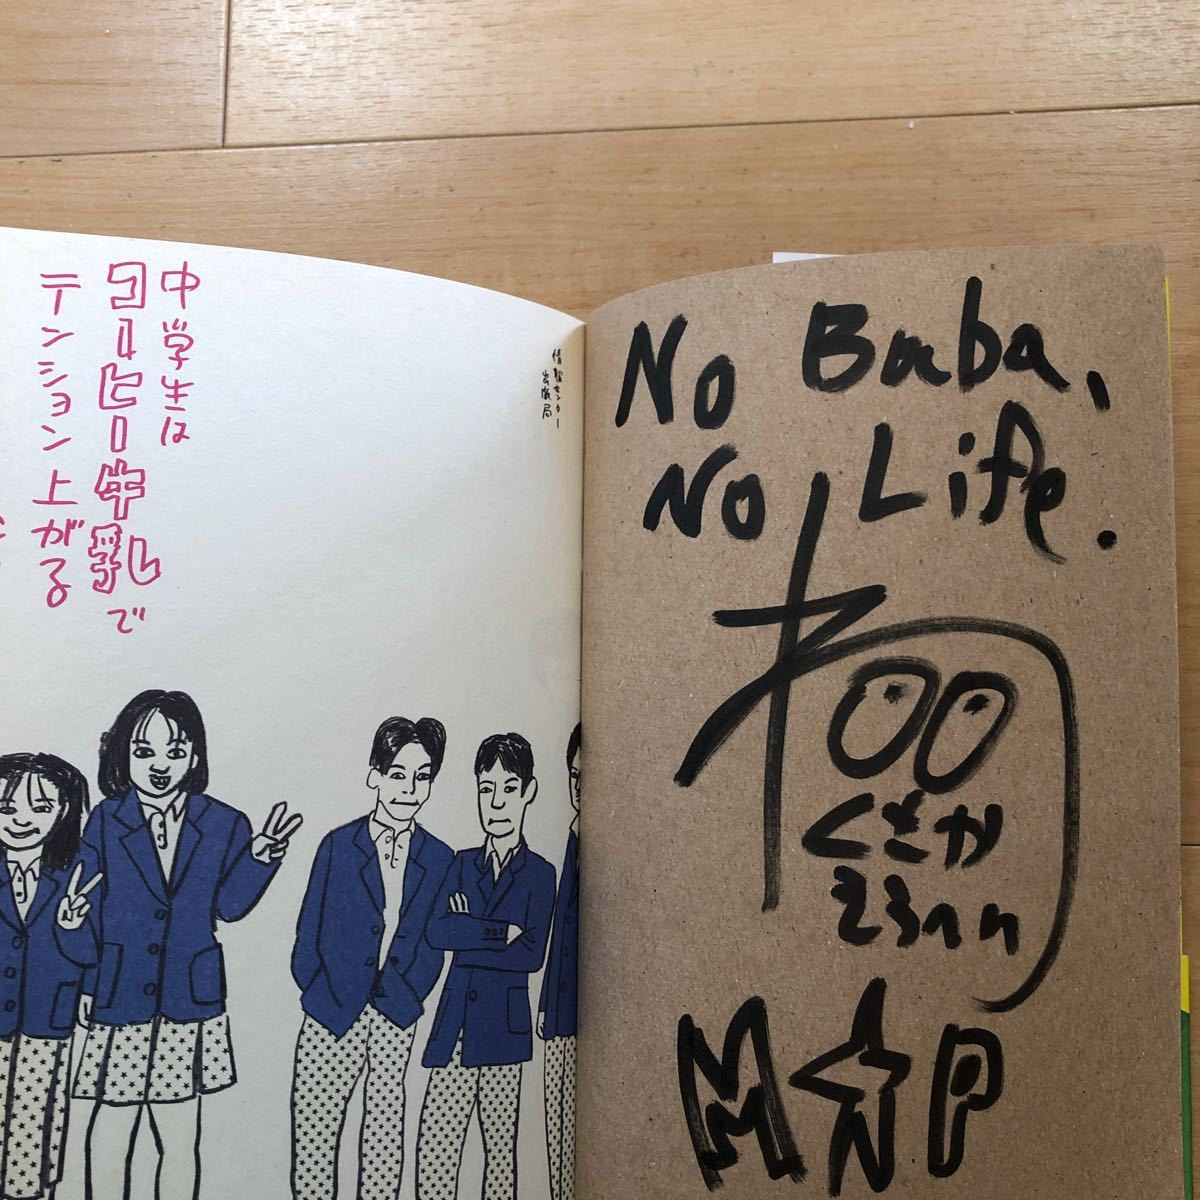 中学生は
コーヒー牛乳で
テンション上がる
情報センター
出版局
No Baba,
No Life.
くさか
M☆P